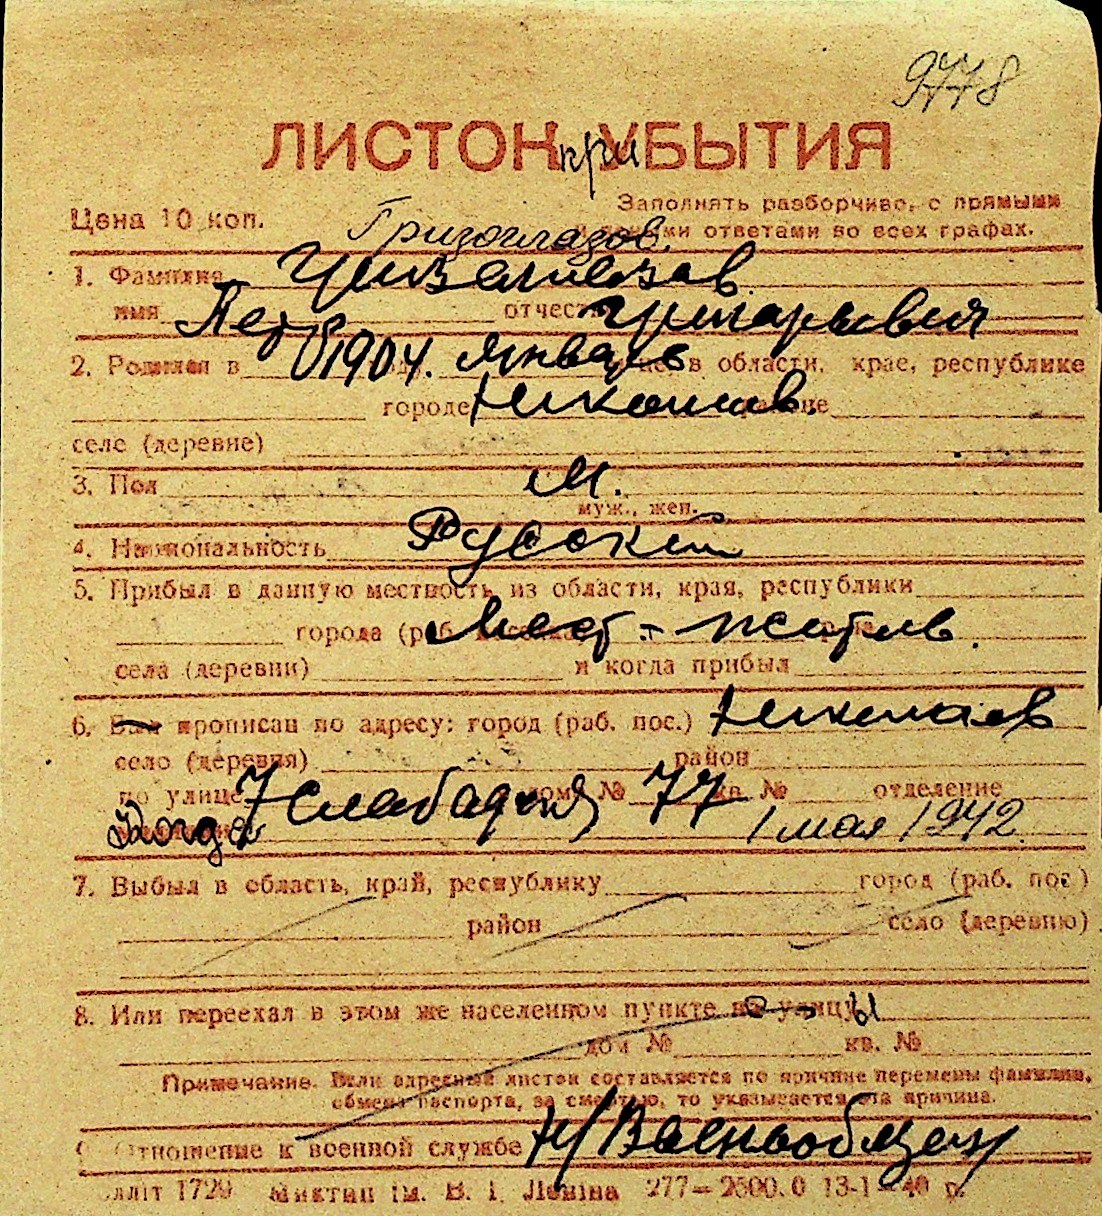 9778
ЛИСТОК при УБЫТИЯ
Цена 10 коп.
Заполнять разборчиво, с прямыми
и ясными ответами во всех графах.
Гризоглазов.
1. Фамилия Гризоглазов
имя Петр отчест Григорьевич
2. Родился в 1904. январь в области, крае, республике
городе Николаев. районе
селе (деревне)
3. Пол М.
муж., жен.
4. Национальность Русский
5. Прибыл в данную местность из области, края, республики
города (раб. поселка) Мест-житель.
села (деревни) и когда прибыл
6. Был прописан по адресу: город (раб. пос.) Николаев
село (деревня) район
по улице 7 Слабадская дом № 77 кв. № отделение
Когда 1 мая 1942
7. Выбыл в область, край, республику город (раб. пос.)
район село (деревню)
8. Или переехал в этом же населенном пункте с улицы
дом № кв. №
Примечание. Если адресный листок составляется по причине перемены фамилии,
обмена паспорта, за смертью, то указывается эта причина.
9. Отношение к военной службе н/Военнообязан
лліт 1729 Миктип ім. В. І. Леніна 277—2500.0 13-1—40 р.